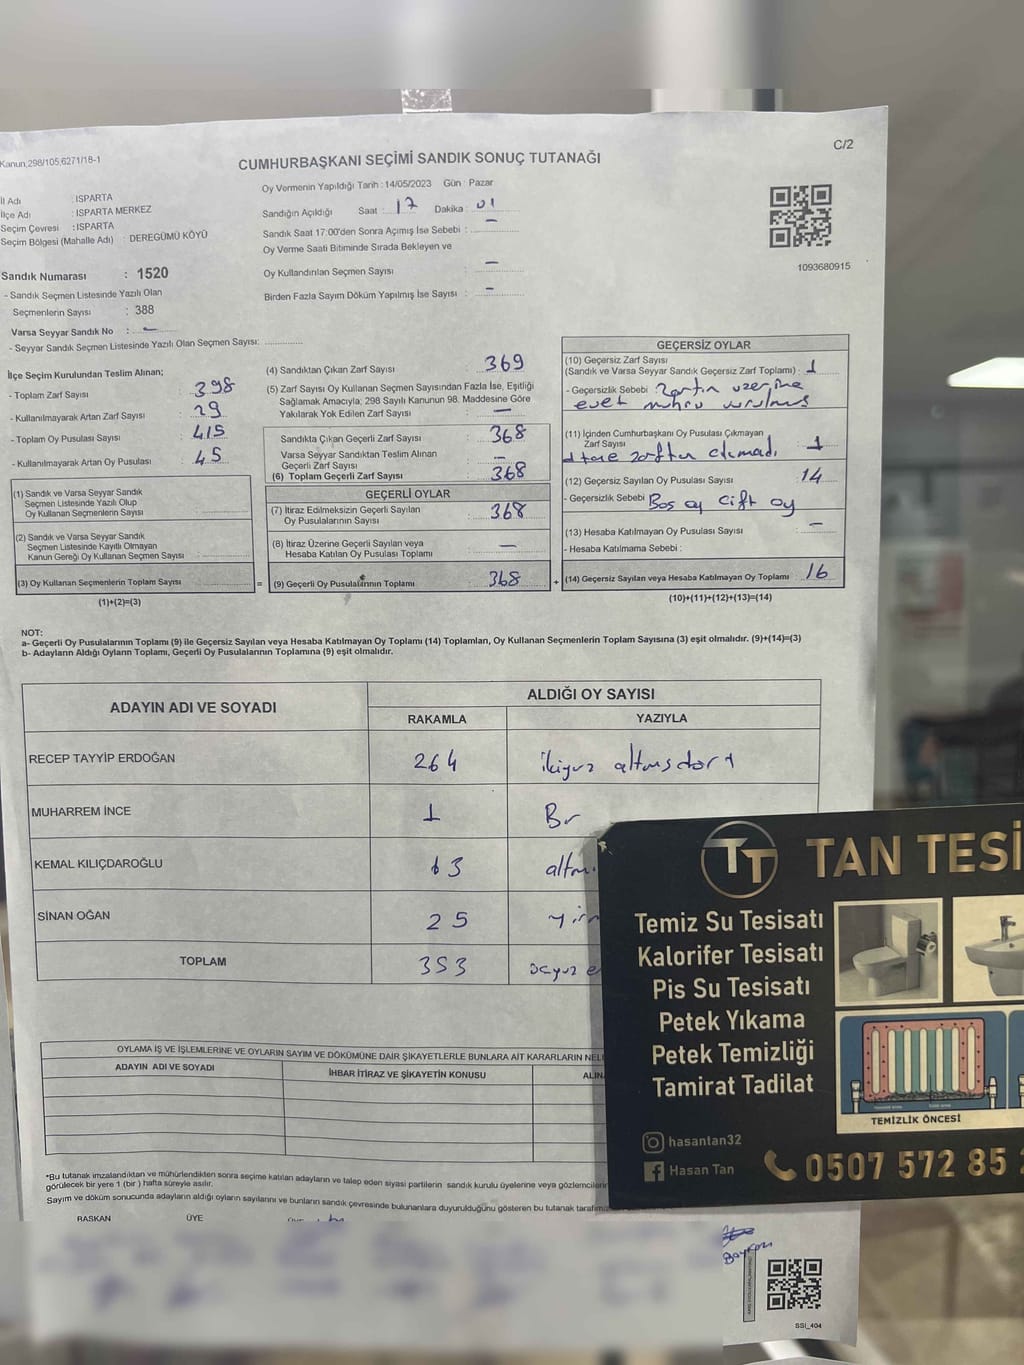 Kanun,298/105,6271/18-1
C/2
CUMHURBAŞKANI SEÇİMİ SANDIK SONUÇ TUTANAĞI
İl Adı : ISPARTA
İlçe Adı : ISPARTA MERKEZ
Seçim Çevresi : ISPARTA
Seçim Bölgesi (Mahalle Adı) : DEREGÜMÜ KÖYÜ
Sandık Numarası : 1520
- Sandık Seçmen Listesinde Yazılı Olan
Seçmenlerin Sayısı : 388
Varsa Seyyar Sandık No : -
- Seyyar Sandık Seçmen Listesinde Yazılı Olan Seçmen Sayısı:
Oy Vermenin Yapıldığı Tarih : 14/05/2023 Gün : Pazar
Sandığın Açıldığı Saat : 17 Dakika : 01
Sandık Saat 17:00'den Sonra Açımış İse Sebebi : -
Oy Verme Saati Bitiminde Sırada Bekleyen ve
Oy Kullandırılan Seçmen Sayısı : -
Birden Fazla Sayım Döküm Yapılmış İse Sayısı : -
1093680915
İlçe Seçim Kurulundan Teslim Alınan;
- Toplam Zarf Sayısı : 398
- Kullanılmayarak Artan Zarf Sayısı : 29
- Toplam Oy Pusulası Sayısı : 415
- Kullanılmayarak Artan Oy Pusulası : 45
(1) Sandık ve Varsa Seyyar Sandık
Seçmen Listesinde Yazılı Olup
Oy Kullanan Seçmenlerin Sayısı :
(2) Sandık ve Varsa Seyyar Sandık
Seçmen Listesinde Kayıtlı Olmayan
Kanun Gereği Oy Kullanan Seçmen Sayısı :
(3) Oy Kullanan Seçmenlerin Toplam Sayısı :
(1)+(2)=(3)
(4) Sandıktan Çıkan Zarf Sayısı : 369
(5) Zarf Sayısı Oy Kullanan Seçmen Sayısından Fazla İse, Eşitliği
Sağlamak Amacıyla; 298 Sayılı Kanunun 98. Maddesine Göre
Yakılarak Yok Edilen Zarf Sayısı : -
Sandıkta Çıkan Geçerli Zarf Sayısı : 368
Varsa Seyyar Sandıktan Teslim Alınan
Geçerli Zarf Sayısı : -
(6) Toplam Geçerli Zarf Sayısı : 368
GEÇERLİ OYLAR
(7) İtiraz Edilmeksizin Geçerli Sayılan
Oy Pusulalarının Sayısı : 368
(8) İtiraz Üzerine Geçerli Sayılan veya
Hesaba Katılan Oy Pusulası Toplamı : -
= (9) Geçerli Oy Pusulalarının Toplamı : 368 +
GEÇERSİZ OYLAR
(10) Geçersiz Zarf Sayısı
(Sandık ve Varsa Seyyar Sandık Geçersiz Zarf Toplamı) : 1
- Geçersizlik Sebebi : Zarfın üzerine
evet mührü vurulmuş
(11) İçinden Cumhurbaşkanı Oy Pusulası Çıkmayan
Zarf Sayısı : 1
1 tane zarftan çıkmadı
(12) Geçersiz Sayılan Oy Pusulası Sayısı : 14
- Geçersizlik Sebebi : Boş oy çift oy
(13) Hesaba Katılmayan Oy Pusulası Sayısı : -
- Hesaba Katılmama Sebebi :
(14) Geçersiz Sayılan veya Hesaba Katılmayan Oy Toplamı : 16
(10)+(11)+(12)+(13)=(14)
NOT:
a- Geçerli Oy Pusulalarının Toplamı (9) ile Geçersiz Sayılan veya Hesaba Katılmayan Oy Toplamı (14) Toplamları, Oy Kullanan Seçmenlerin Toplam Sayısına (3) eşit olmalıdır. (9)+(14)=(3)
b- Adayların Aldığı Oyların Toplamı, Geçerli Oy Pusulalarının Toplamına (9) eşit olmalıdır.
ADAYIN ADI VE SOYADI ALDIĞI OY SAYISI
RAKAMLA YAZIYLA
RECEP TAYYİP ERDOĞAN 264 ikiyüz altmışdört
MUHARREM İNCE 1 Bir
KEMAL KILIÇDAROĞLU 63
SİNAN OĞAN 25
TOPLAM 353
OYLAMA İŞ VE İŞLEMLERİNE VE OYLARIN SAYIM VE DÖKÜMÜNE DAİR ŞİKAYETLERLE BUNLARA AİT KARARLARIN NELİ
ADAYIN ADI VE SOYADI İHBAR İTİRAZ VE ŞİKAYETİN KONUSU ALIN
*Bu tutanak imzalandıktan ve mühürlendikten sonra seçime katılan adayların ve talep eden siyasi partilerin sandık kurulu üyelerine veya gözlemcilerin
görülecek bir yere 1 (bir) hafta süreyle asılır.
Sayım ve döküm sonucunda adayların aldığı oyların sayılarını ve bunların sandık çevresinde bulunanlara duyurulduğunu gösteren bu tutanak tarafımız
BAŞKAN ÜYE
SSİ_404
TT TAN TESİ
Temiz Su Tesisatı
Kalorifer Tesisatı
Pis Su Tesisatı
Petek Yıkama
Petek Temizliği
Tamirat Tadilat
TEMİZLİK ÖNCESİ
hasantan32
Hasan Tan
0507 572 85